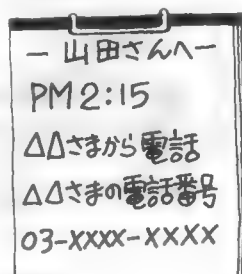 －山田さんへ－
PM2:15
△△さまから電話
△△さまの電話番号
03-XXXX-XXXX